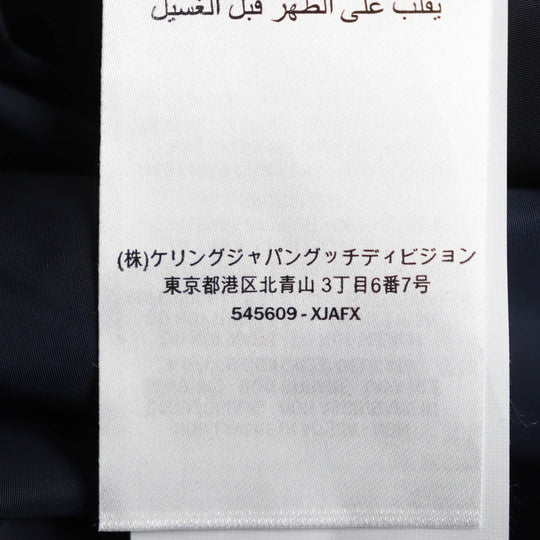 يقلب على الظهر قبل الغسيل
(株)ケリングジャパングッチディビジョン
東京都港区北青山 3丁目6番7号
545609 - XJAFX